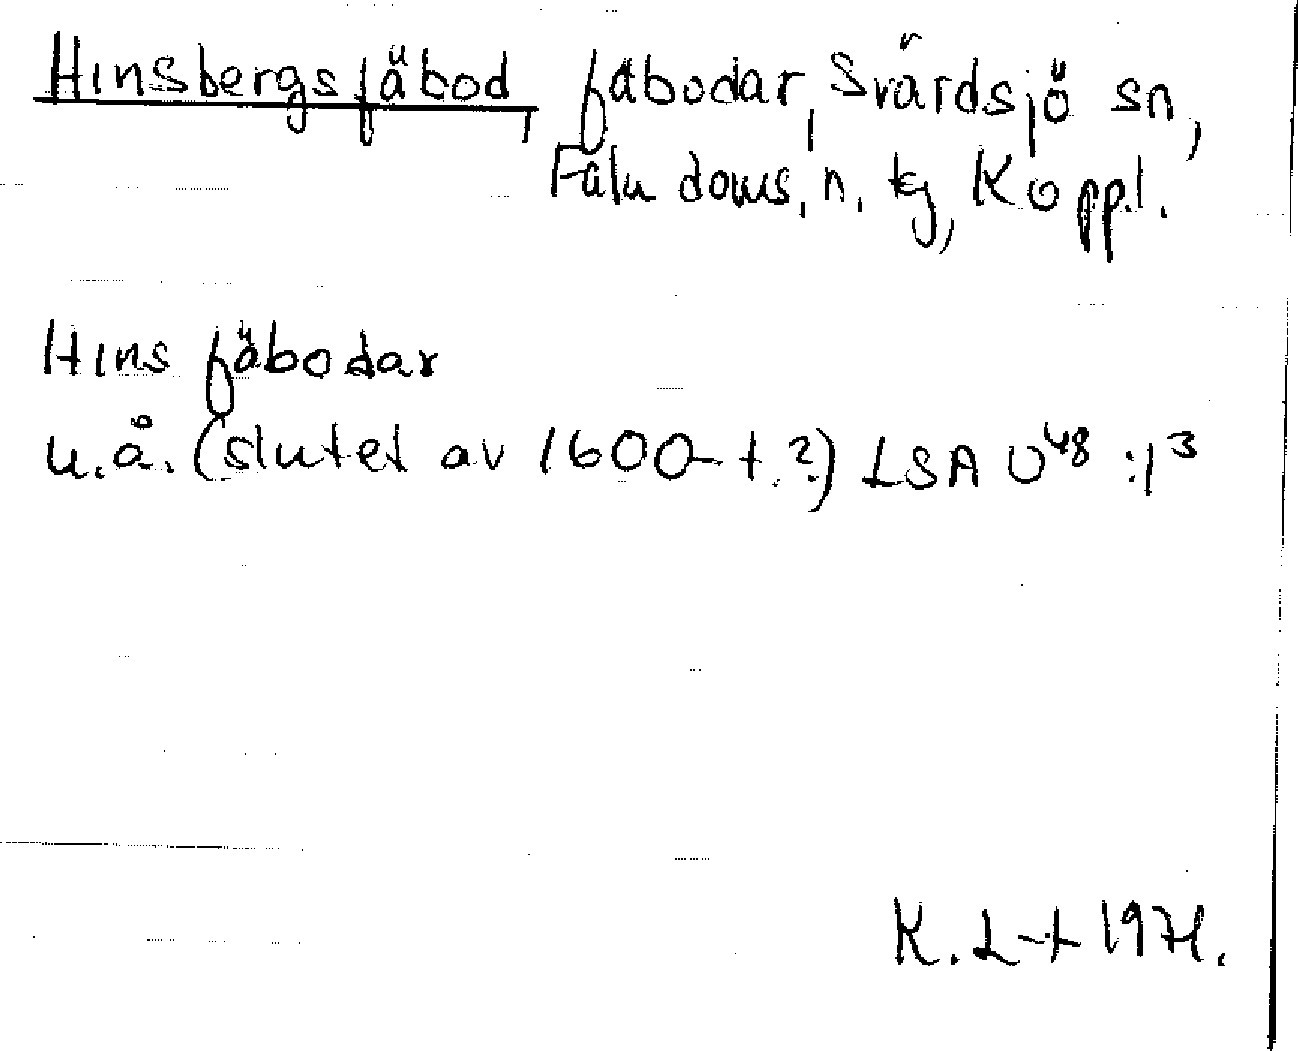 Hinsbergs fäbod, fäbodar, Svärdsjö sn,
Falu doms. n. tg, Koppl.
Hins fäbodar
u.å. (slutet av 1600-t.?) LSA U48:13
K. L-t 1971.